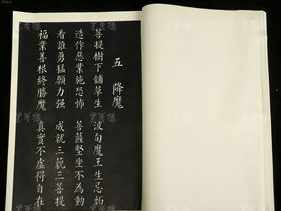 五 降魔
菩提樹下鋪草坐 波旬魔王生忌妒
造作惡業施恐怖 菩薩堅坐不為動
看誰勇猛願力强 成就三藐三菩提
福業善根終勝魔 真實不虛得自在